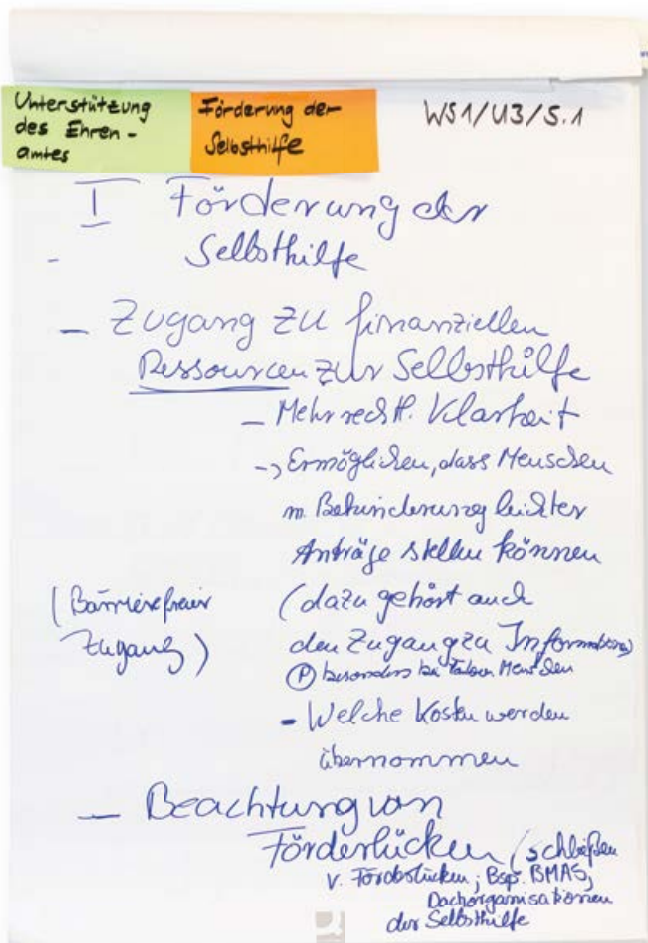 Unterstützung
des Ehren-
amtes
Förderung der
Selbsthilfe
WS1/U3/S.1
I Förderung der
- Selbsthilfe
- Zugang zu finanziellen
Ressourcen zur Selbsthilfe
- Mehr rechtl. Klarheit
-> Ermöglichen, dass Menschen
m. Behinderung leichter
Anträge stellen können
(Barrierefreier
Zugang)
(dazu gehört auch
den Zugang zu Information)
(P) besonders bei tauben Menschen
- Welche Kosten werden
übernommen
- Beachtung von
Förderlücken (schließen
v. Förderlücken; Bsp. BMAS,
Dachorganisationen
der Selbsthilfe